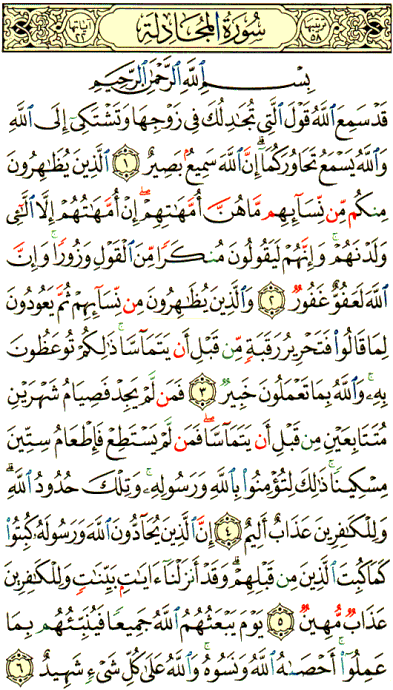 ترتيبها ٥٨ سُورَةُ المُجَادلة آياتها ٢٢
بِسْمِ اللَّهِ الرَّحْمَنِ الرَّحِيمِ
قَدْ سَمِعَ ٱللَّهُ قَوْلَ ٱلَّتِى تُجَٰدِلُكَ فِى زَوْجِهَا وَتَشْتَكِىٓ إِلَى ٱللَّهِ
وَٱللَّهُ يَسْمَعُ تَحَاوُرَكُمَآ ۚ إِنَّ ٱللَّهَ سَمِيعٌۢ بَصِيرٌ ١ ٱلَّذِينَ يُظَٰهِرُونَ
مِنكُم مِّن نِّسَآئِهِم مَّا هُنَّ أُمَّهَٰتِهِمْ ۖ إِنْ أُمَّهَٰتُهُمْ إِلَّا ٱلَّٰٓـِٔى
وَلَدْنَهُمْ ۚ وَإِنَّهُمْ لَيَقُولُونَ مُنكَرًا مِّنَ ٱلْقَوْلِ وَزُورًا ۚ وَإِنَّ
ٱللَّهَ لَعَفُوٌّ غَفُورٌ ٢ وَٱلَّذِينَ يُظَٰهِرُونَ مِن نِّسَآئِهِمْ ثُمَّ يَعُودُونَ
لِمَا قَالُوا۟ فَتَحْرِيرُ رَقَبَةٍ مِّن قَبْلِ أَن يَتَمَآسَّا ۚ ذَٰلِكُمْ تُوعَظُونَ
بِهِۦ ۚ وَٱللَّهُ بِمَا تَعْمَلُونَ خَبِيرٌ ٣ فَمَن لَّمْ يَجِدْ فَصِيَامُ شَهْرَيْنِ
مُتَتَابِعَيْنِ مِن قَبْلِ أَن يَتَمَآسَّا ۖ فَمَن لَّمْ يَسْتَطِعْ فَإِطْعَامُ سِتِّينَ
مِسْكِينًا ۚ ذَٰلِكَ لِتُؤْمِنُوا۟ بِٱللَّهِ وَرَسُولِهِۦ ۚ وَتِلْكَ حُدُودُ ٱللَّهِ ۗ
وَلِلْكَٰفِرِينَ عَذَابٌ أَلِيمٌ ٤ إِنَّ ٱلَّذِينَ يُحَآدُّونَ ٱللَّهَ وَرَسُولَهُۥ كُبِتُوا۟
كَمَا كُبِتَ ٱلَّذِينَ مِن قَبْلِهِمْ ۚ وَقَدْ أَنزَلْنَآ ءَايَٰتٍۭ بَيِّنَٰتٍ ۚ وَلِلْكَٰفِرِينَ
عَذَابٌ مُّهِينٌ ٥ يَوْمَ يَبْعَثُهُمُ ٱللَّهُ جَمِيعًا فَيُنَبِّئُهُم بِمَا
عَمِلُوٓا۟ ۚ أَحْصَىٰهُ ٱللَّهُ وَنَسُوهُ ۚ وَٱللَّهُ عَلَىٰ كُلِّ شَىْءٍ شَهِيدٌ ٦